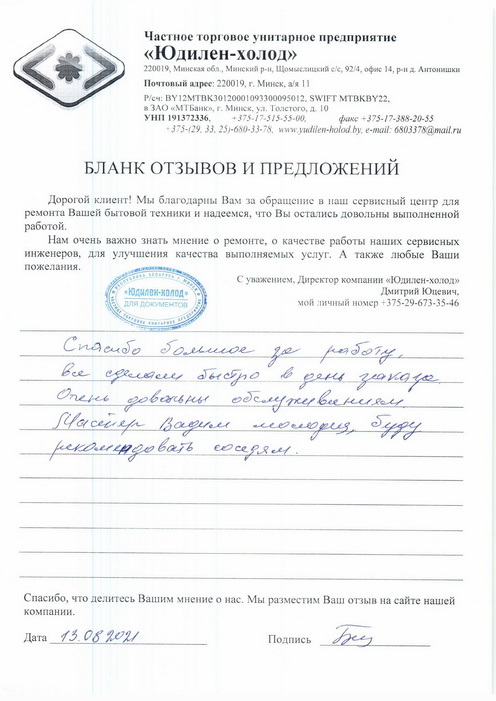 Частное торговое унитарное предприятие
«Юдилен-холод»
220019, Минская обл., Минский р-н, Щомыслицкий с/с, 92/4, офис 14, р-н д. Антонишки
Почтовый адрес: 220019, г. Минск, а/я 11
Р/сч: BY12MTBK30120001093300095012, SWIFT MTBKBY22,
в ЗАО «МТБанк», г. Минск, ул. Толстого, д. 10
УНП 191372336, +375-17-515-55-00, факс +375-17-388-20-55
+375-(29, 33, 25)-680-33-78, www.yudilen-holod.by, e-mail: 6803378@mail.ru
БЛАНК ОТЗЫВОВ И ПРЕДЛОЖЕНИЙ
Дорогой клиент! Мы благодарны Вам за обращение в наш сервисный центр для
ремонта Вашей бытовой техники и надеемся, что Вы остались довольны выполненной
работой.
Нам очень важно знать мнение о ремонте, о качестве работы наших сервисных
инженеров, для улучшения качества выполняемых услуг. А также любые Ваши
пожелания.
С уважением, Директор компании «Юдилен-холод»
Дмитрий Юцевич,
мой личный номер +375-29-673-35-46
«Юдилен-холод»
ДЛЯ ДОКУМЕНТОВ
Спасибо большое за работу,
все сделали быстро в день заказа.
Очень довольны обслуживанием
Мастер Вадим молодец, буду
рекомендовать соседям.
Спасибо, что делитесь Вашим мнение о нас. Мы разместим Ваш отзыв на сайте нашей
компании.
Дата 13.08.2021 Подпись